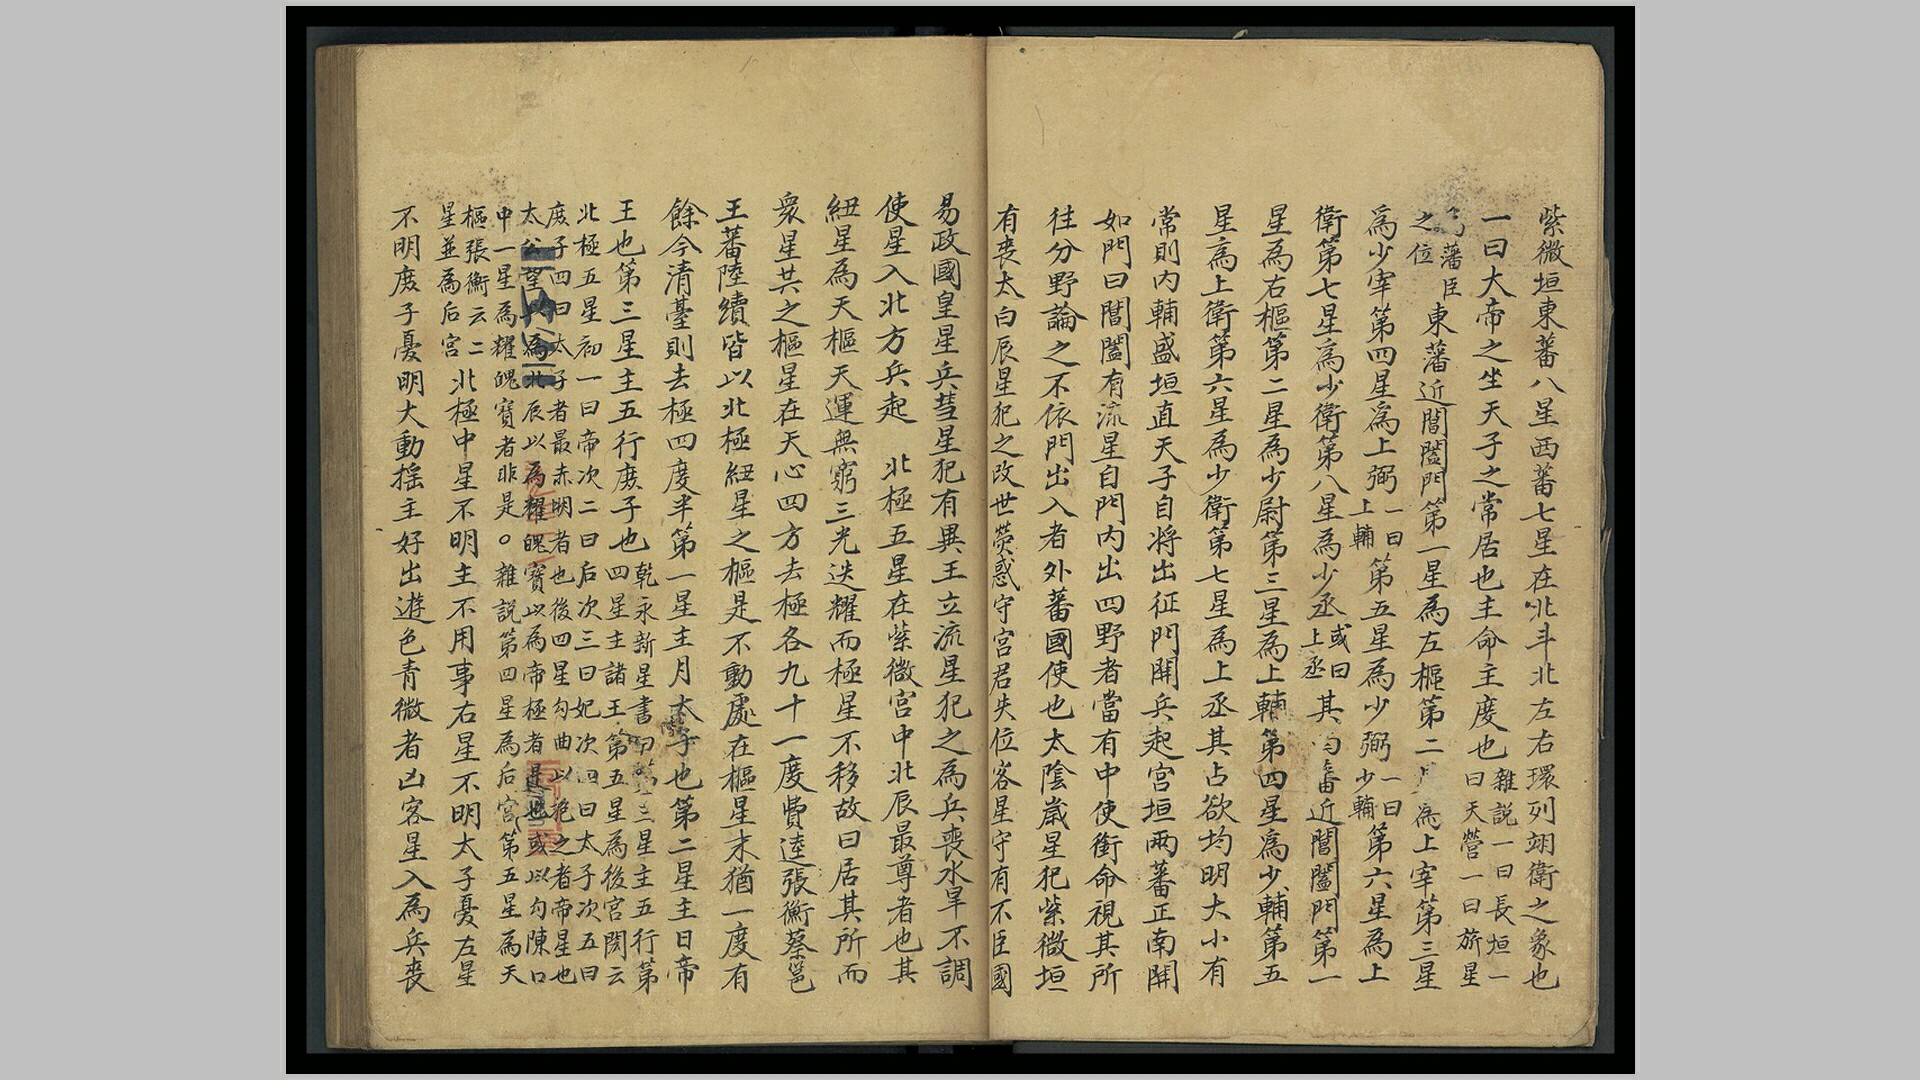 紫微垣東蕃八星西蕃七星在北斗北左右環列翊衛之象也
一曰大帝之坐天子之常居也主命主度也雜說一曰長垣一
曰天營一曰旅星
藩臣
之位東藩近閶闔門第一星為左樞第二為上宰第三星
為少宰第四星為上弼一曰
上輔第五星為少弼一曰
少輔第六星為上
衛第七星為少衛第八星為少丞或曰
上丞其蕃近閶闔門第一
星為右樞第二星為少尉第三星為上輔第四星為少輔第五
星為上衛第六星為少衛第七星為上丞其占欲均明大小有
常則內輔盛垣直天子自將出征門開兵起宮垣兩蕃正南開
如門曰閶闔有流星自門內出四野者當有中使銜命視其所
往分野論之不依門出入者外蕃國使也太陰歲星犯紫微垣
有喪太白辰星犯之改世熒惑守宮君失位客星守有不臣國
易政國皇星兵彗星犯有異王立流星犯之為兵喪水旱不調
使星入北方兵起 北極五星在紫微宮中北辰最尊者也其
紐星為天樞天運無窮三光迭耀而極星不移故曰居其所而
衆星共之樞星在天心四方去極各九十一度費逵張衡蔡邕
王蕃陸續皆以北極紐星之樞是不動處在樞星末猶一度有
餘今清臺則去極四度半第一星主月太子也第二星主日帝
王也第三星主五行庶子也乾永新星書曰三星主五行第
四星主諸王第五星為後宮閎云
北極五星初一曰帝次二曰后次三曰妃次四曰太子次五曰
庶子四曰太子者最赤明者也後四星勾曲以抱之者帝星也
太公望為北辰以為耀魄寶以為帝極者是也或以勾陳口
中一星為耀魄寶者非是○雜說第四星為后宮第五星為天
樞張衡云二
星並為后宮北極中星不明主不用事右星不明太子憂左星
不明庶子憂明大動搖主好出遊色青微者凶客星入為兵喪